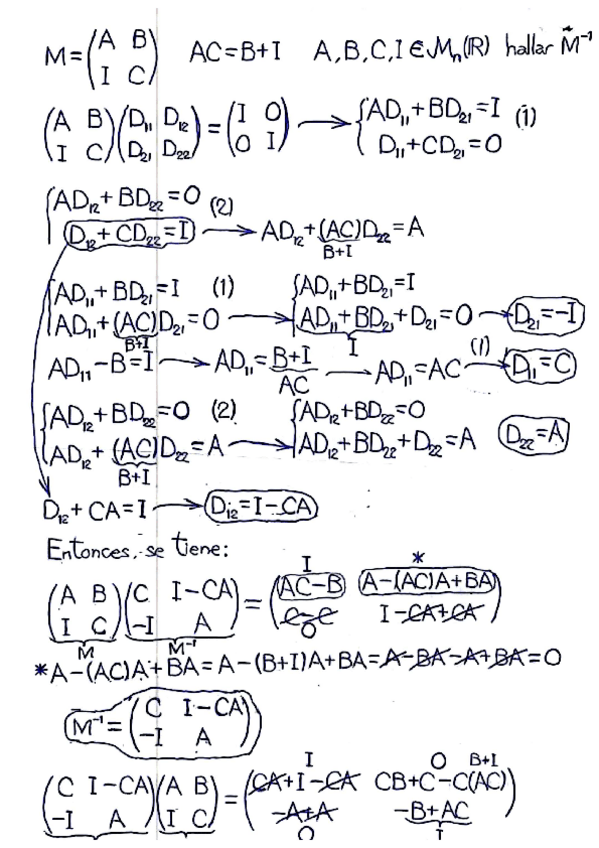 M=(A B I C) AC=B+I A,B,C,I∈Mₙ(ℝ) hallar M⁻¹
(A B I C)(D₁₁ D₁₂ D₂₁ D₂₂)=(I O O I) → {AD₁₁+BD₂₁=I (1)
D₁₁+CD₂₁=O
{AD₁₂+BD₂₂=O (2)
D₁₂+CD₂₂=I → AD₁₂+(AC)D₂₂=A
B+I
{AD₁₁+BD₂₁=I (1) {AD₁₁+BD₂₁=I
AD₁₁+(AC)D₂₁=O → AD₁₁+BD₂₁+D₂₁=O → D₂₁=-I
B+I I
AD₁₁-B=I → AD₁₁=B+I → AD₁₁=AC (1) → D₁₁=C
AC
{AD₁₂+BD₂₂=O (2) {AD₁₂+BD₂₂=O
AD₁₂+(AC)D₂₂=A → AD₁₂+BD₂₂+D₂₂=A D₂₂=A
B+I
D₁₂+CA=I → D₁₂=I-CA
Entonces, se tiene:
I *
(A B I C)(C I-CA -I A)=(AC-B A-(AC)A+BA C-C I-CA+CA)
M M⁻¹ O
*A-(AC)A+BA=A-(B+I)A+BA=A-BA-A+BA=O
M⁻¹=(C I-CA -I A)
I O B+I
(C I-CA -I A)(A B I C)=(CA+I-CA CB+C-C(AC) -A+A -B+AC)
O I